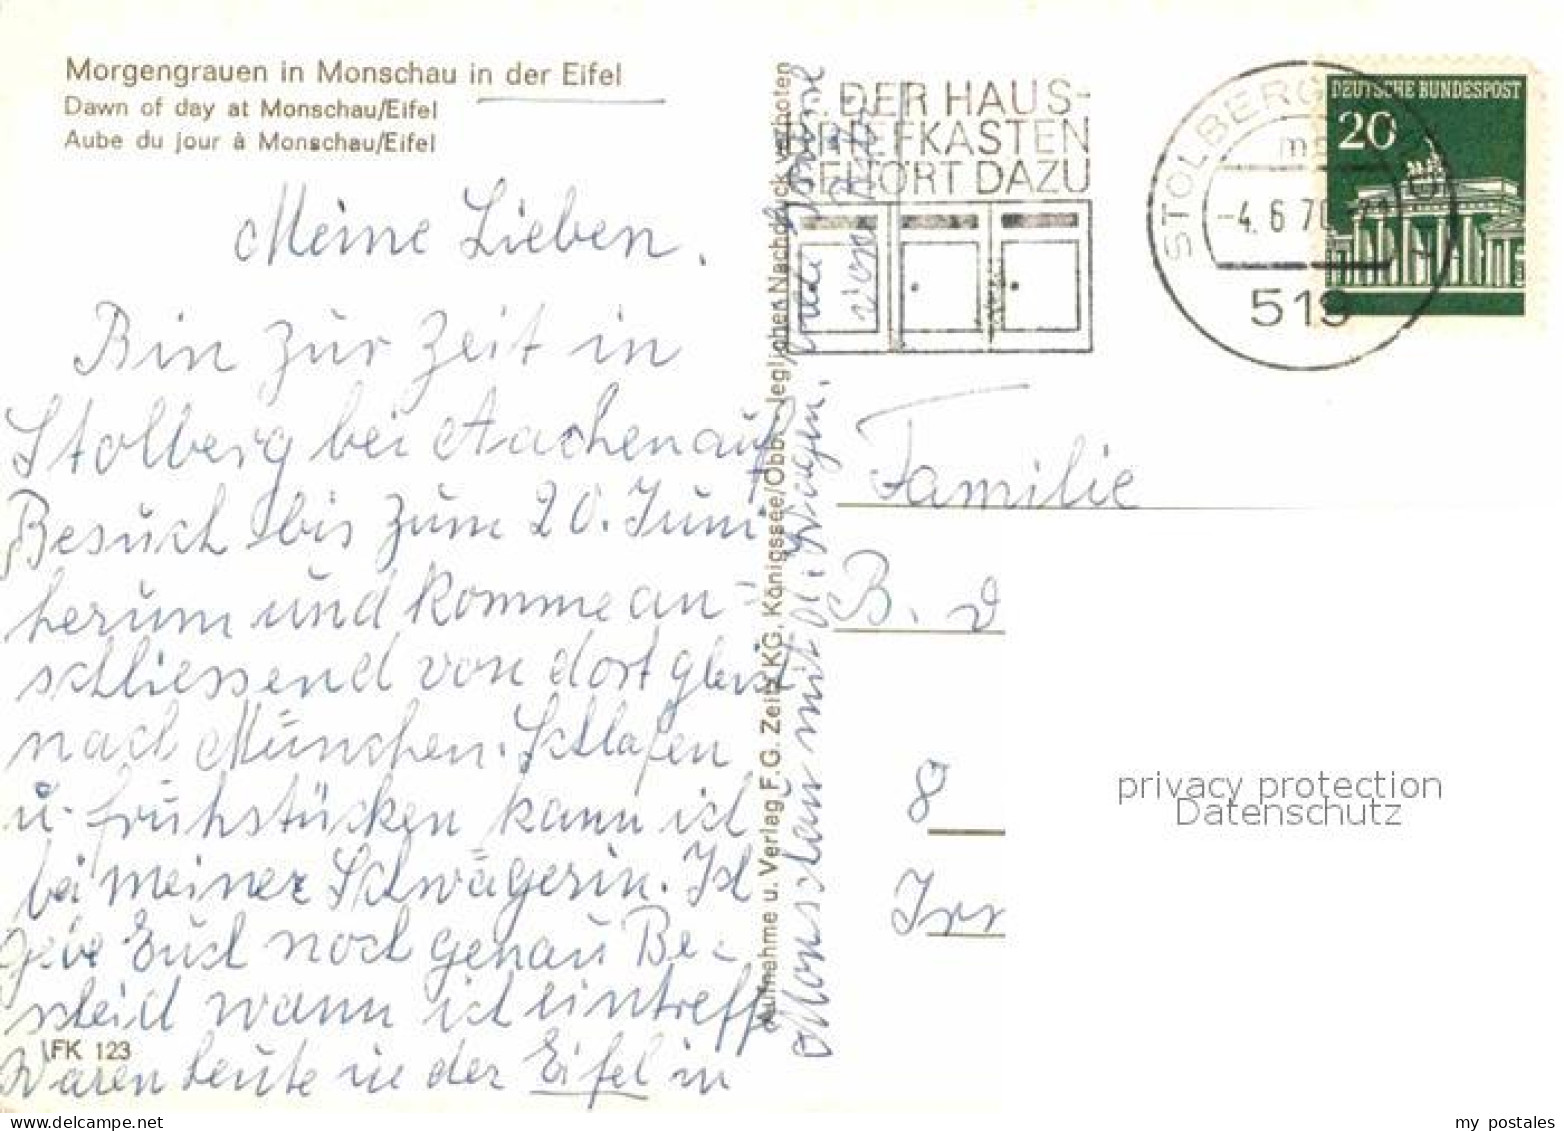 Morgengrauen in Monschau in der Eifel
Dawn of day at Monschau/Eifel
Aube du jour à Monschau/Eifel
Meine Lieben.
Bin zur Zeit in
Stolberg bei Aachen auf
Besuch bis zum 20. Juni
herum und komme an-
schliessend von dort gleich
nach München. Schlafen
u. frühstücken kann ich
bei meiner Schwägerin. Ich
gebe Euch noch genau Be-
scheid wann ich eintreffe
Waren heute in der Eifel in
Monschau mit d. Wagen.
von
FK 123
Aufnahme u. Verlag F.G. Zeitz KG. Königssee/Obb. - Jeglicher Nachdruck verboten
DER HAUS-
BRIEFKASTEN
GEHÖRT DAZU
STOLBERG
-4.6.70-21
519
DEUTSCHE BUNDESPOST
20
Familie
B. d
8
Irr
privacy protection
Datenschutz
www.delcampe.net
my_postales